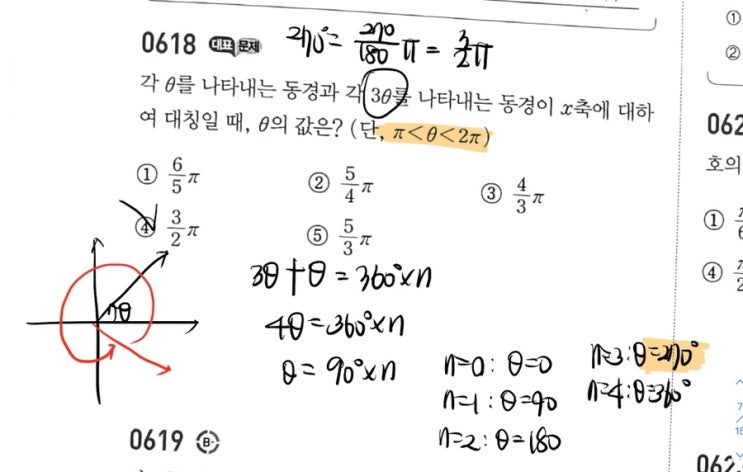 0618 대표 문제 270°= 270/180 π = 3/2 π
각 θ를 나타내는 동경과 각 3θ를 나타내는 동경이 x축에 대하
여 대칭일 때, θ의 값은? (단, π<θ<2π)
① 6/5 π ② 5/4 π ③ 4/3 π
④ 3/2 π ⑤ 5/3 π
3θ+θ=360°×n
4θ=360°×n
θ=90°×n
n=0: θ=0
n=1: θ=90
n=2: θ=180
n=3: θ=270°
n=4: θ=360°
0619 B-
①
②
062
호의
①
④
062